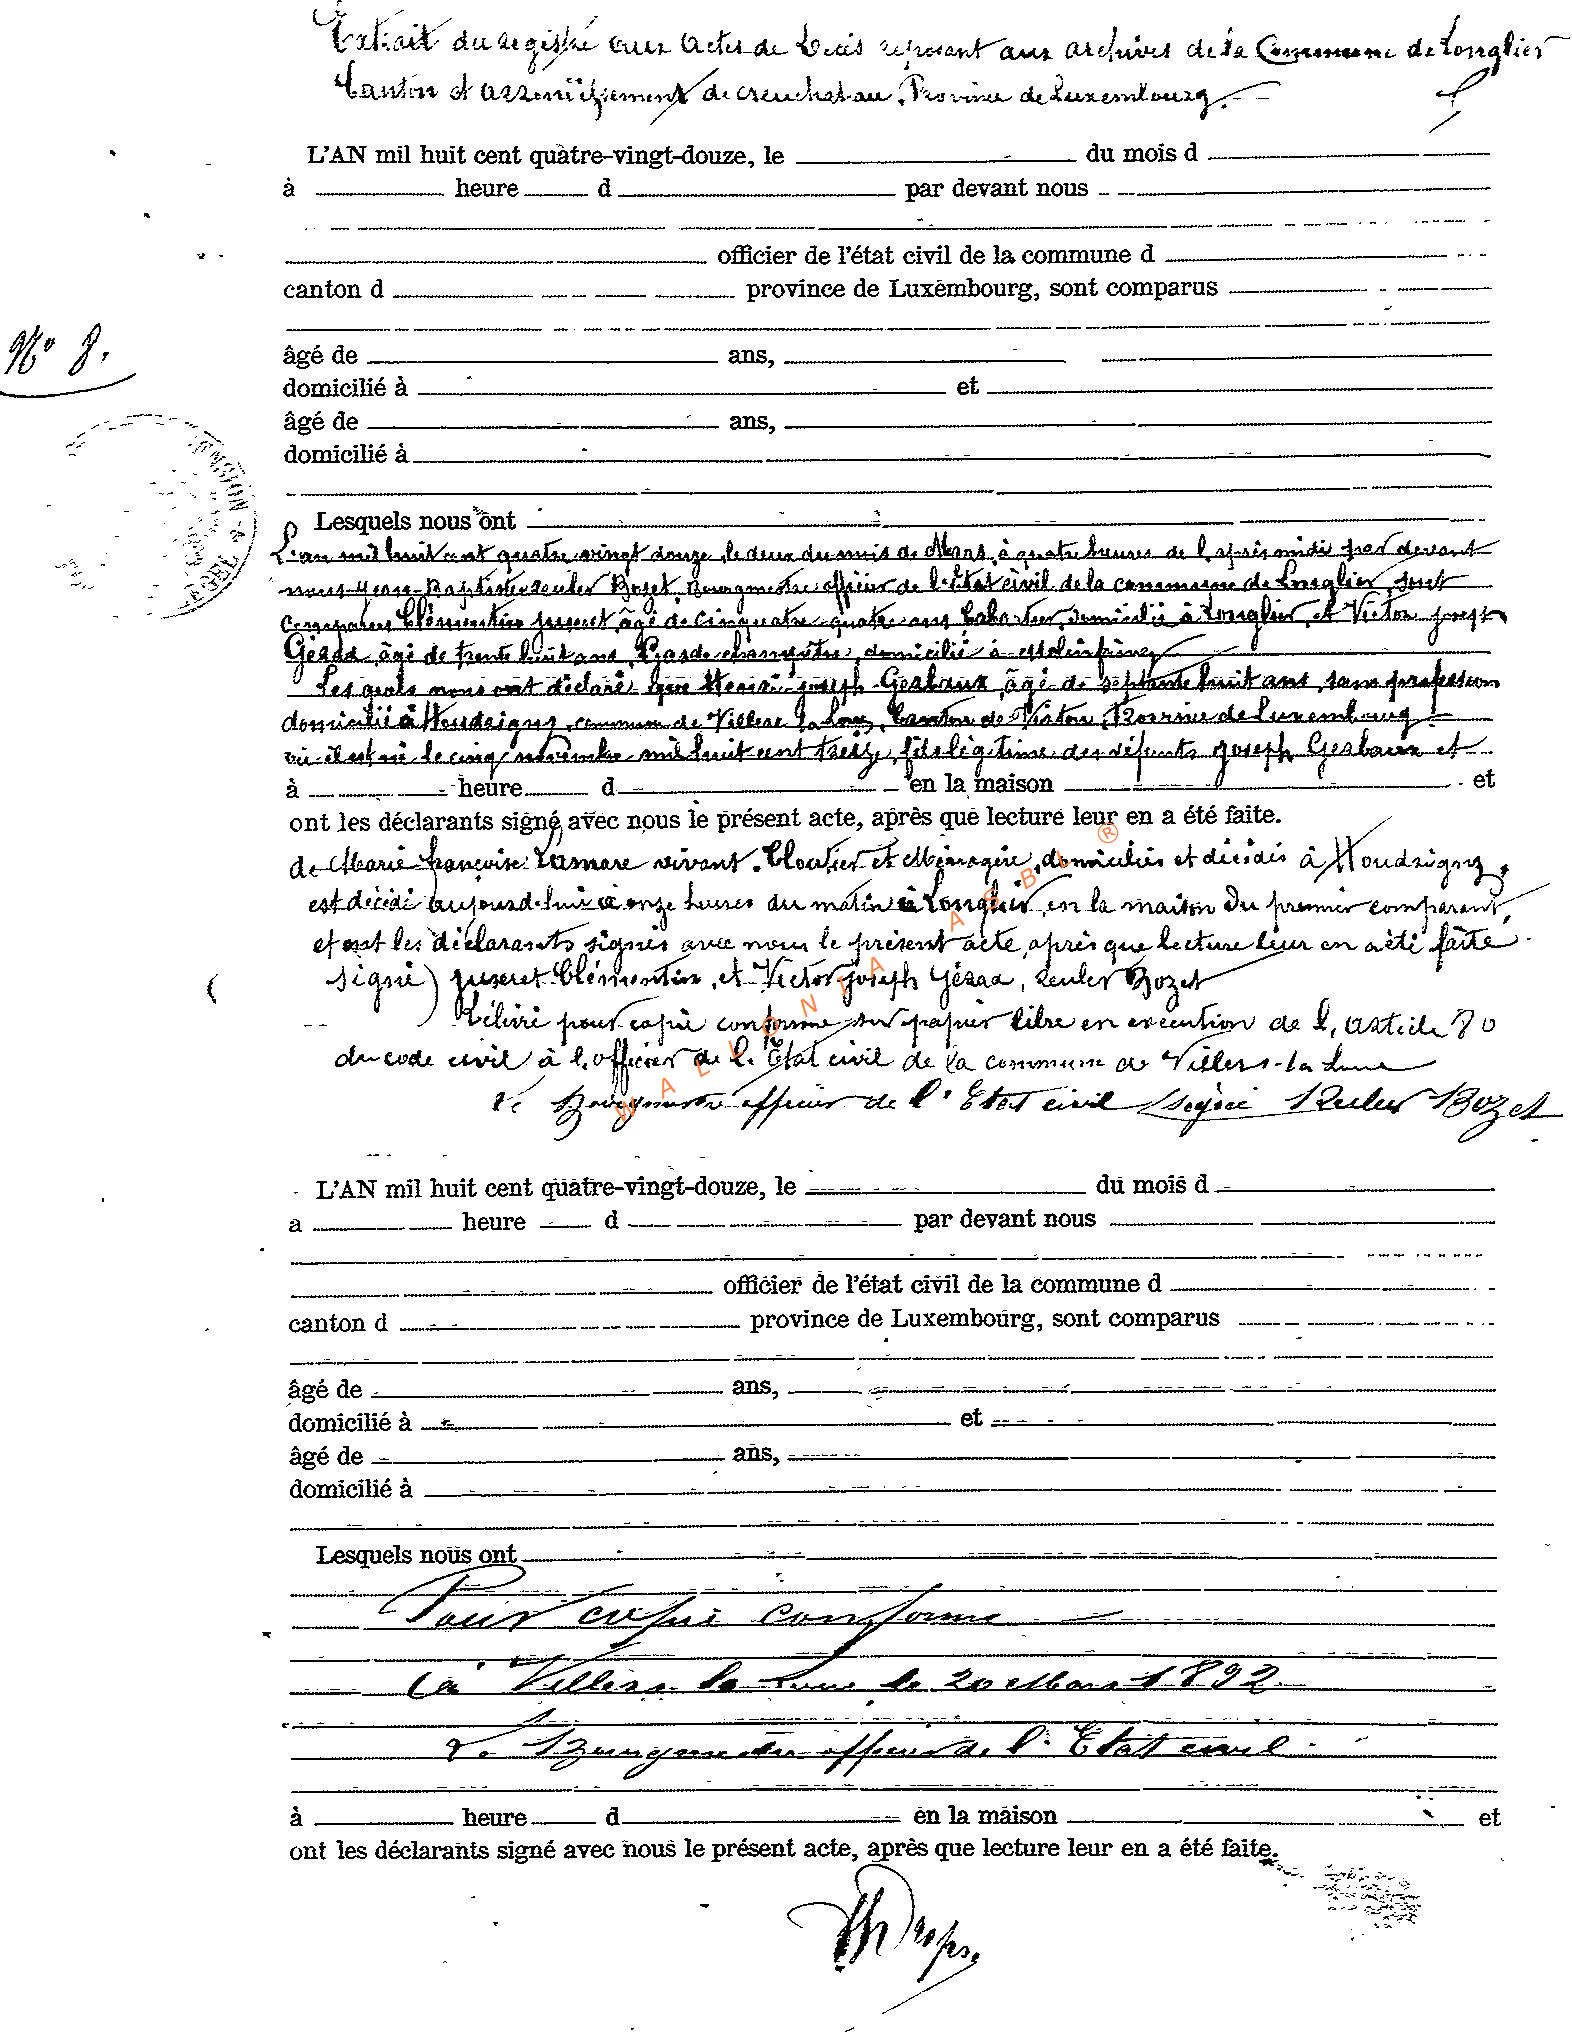 Extrait du registre aux Actes de Décès reposant aux archives de la Commune de Longlier
Canton et arrondissement de Neufchateau. Province de Luxembourg.
L'AN mil huit cent quatre-vingt-douze, le du mois d
à heure d par devant nous
officier de l'état civil de la commune d
canton d province de Luxembourg, sont comparus
N° 8.
âgé de ans,
domicilié à et
âgé de ans,
domicilié à
Lesquels nous ont
L'an mil huit cent quatre vingt douze, le deux du mois de Mars, à quatre heures de l'après midi par devant
nous Jean-Baptiste Reuler Bozet, Bourgmestre officier de l'Etat civil de la commune de Longlier, sont
comparus Clémentin juseret, âgé de cinquante quatre ans Cabartier, domicilié à Longlier, et Victor joseph
Gérard, âgé de trente huit ans, Garde champêtre, domicilié à
Les quels nous ont déclaré que Henri joseph Gerlaux, âgé de septante huit ans, sans profession
domicilié à Houdrigny, commune de Villers la Loue, Canton de Virton, Province de Luxembourg
où il est né le cinq novembre mil huit cent treize, fils légitime des défunts joseph Gerlaux et
à heure d en la maison et
ont les déclarants signé avec nous le présent acte, après que lecture leur en a été faite.
de Marie françoise Lamare vivant. Cloutier et Ménagère, domiciliés et décédés à Houdrigny,
est décédé aujourd'hui à onze heures du matin à Longlier, en la maison du premier comparant,
et ont les déclarants signés avec nous le présent acte, après que lecture leur en a été faite.
signé) juseret Clémentin, et Victor joseph Gérard, Reuler Bozet
Délivré pour copie conforme sur papier libre en exécution de l'article 80
du code civil à l'officier de l'Etat civil de la commune de Villers-la Loue
Le Bourgmestre officier de l'Etat civil (signé) Reuler Bozet
WALLONIA ASBL ®
L'AN mil huit cent quatre-vingt-douze, le du mois d
a heure d par devant nous
officier de l'état civil de la commune d
canton d province de Luxembourg, sont comparus
âgé de ans,
domicilié à et
âgé de ans,
domicilié à
Lesquels nous ont
Pour copie conforme
à Villers la Loue le 20 Mars 1892
Le Bourgmestre officier de l'Etat civil.
à heure d en la maison et
ont les déclarants signé avec nous le présent acte, après que lecture leur en a été faite.